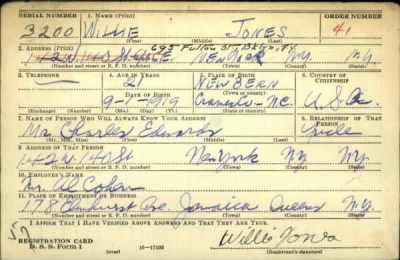 SERIAL NUMBER 1. NAME (Print) ORDER NUMBER
3200 WILLIE JONES 41
(First) (Middle) (Last)
2. ADDRESS (Print) 695 Fulton St. Bklyn, NY
142 W 140 St. NYC NEW YORK N.Y. N.Y.
(Number and street or R. F. D. number) (Town) (County) (State)
3. TELEPHONE 4. AGE IN YEARS 5. PLACE OF BIRTH 6. COUNTRY OF CITIZENSHIP
21 NEW BERN
DATE OF BIRTH (Town or county)
9-1-1919 Craven Co - N.C. U.S.A.
(Exchange) (Number) (Mo.) (Day) (Yr.) (State or country)
7. NAME OF PERSON WHO WILL ALWAYS KNOW YOUR ADDRESS 8. RELATIONSHIP OF THAT PERSON
Mr. Charles Edwards Uncle
(Mr., Mrs., Miss) (First) (Middle) (Last)
9. ADDRESS OF THAT PERSON
142 W. 140 St New York NY NY.
(Number and street or R. F. D. number) (Town) (County) (State)
10. EMPLOYER'S NAME
Mr. Al Cohen
11. PLACE OF EMPLOYMENT OR BUSINESS
178 Ave. Jamaica Queens N.Y.
(Number and street or R. F. D. number) (Town) (County) (State)
I AFFIRM THAT I HAVE VERIFIED ABOVE ANSWERS AND THAT THEY ARE TRUE.
REGISTRATION CARD
D. S. S. Form 1 (over) 16-17105 Willie Jones
(Registrant's signature)